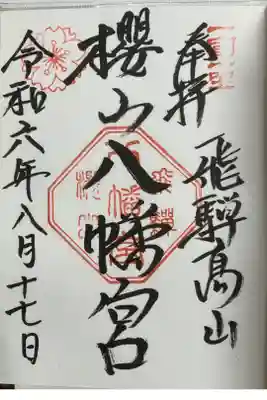 奉拝 飛騨高山
櫻山八幡宮
令和六年八月十七日